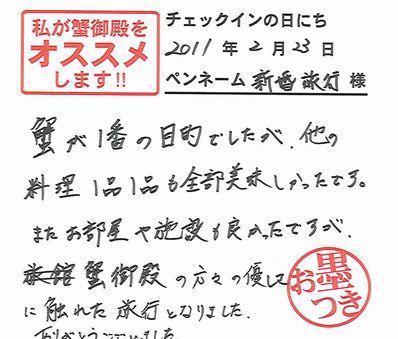 私が蟹御殿を
オススメ
します!!
チェックインの日にち
2011年2月23日
ペンネーム 新婚旅行 様
蟹が1番の目的でしたが、他の
料理1品1品も全部美味しかったです。
またお部屋や施設も良かったですが、
旅館 蟹御殿の方々の優しさ
に触れた旅行となりました。
ありがとうございました
お墨つき